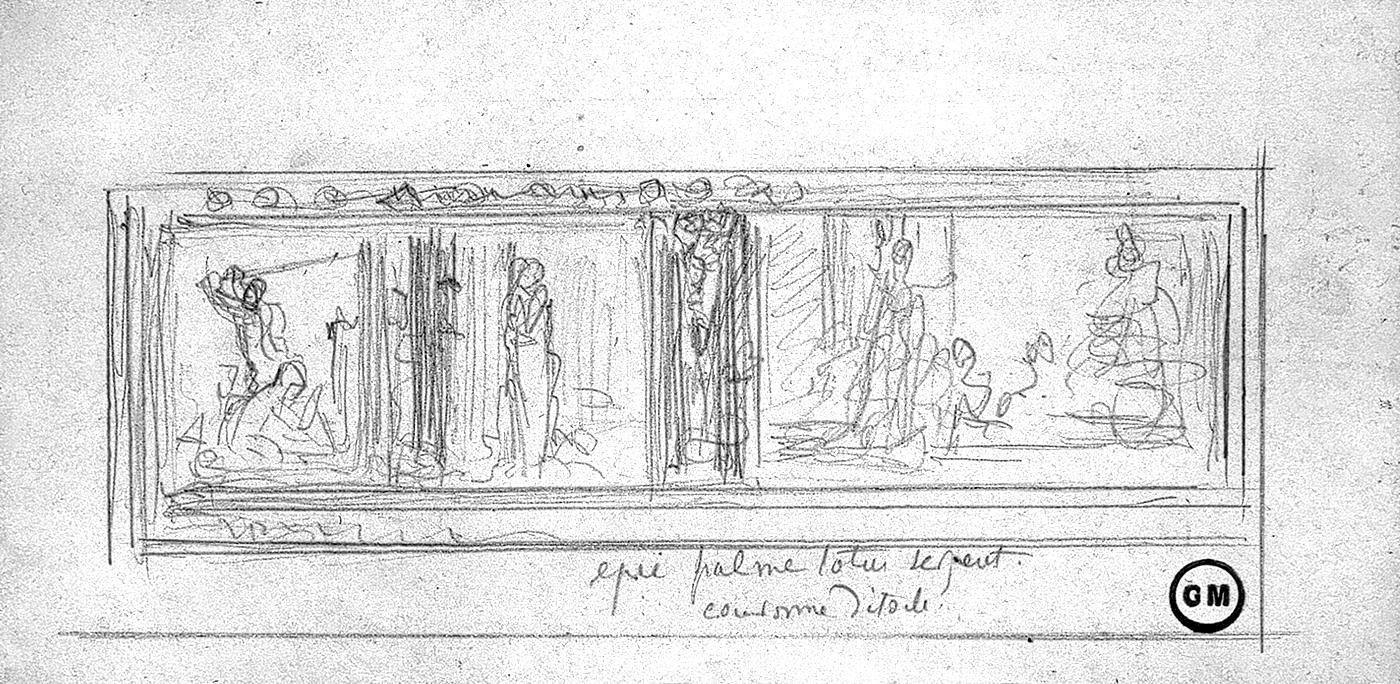 epis palme lotus serpent.
couronne d'étoile.
GM